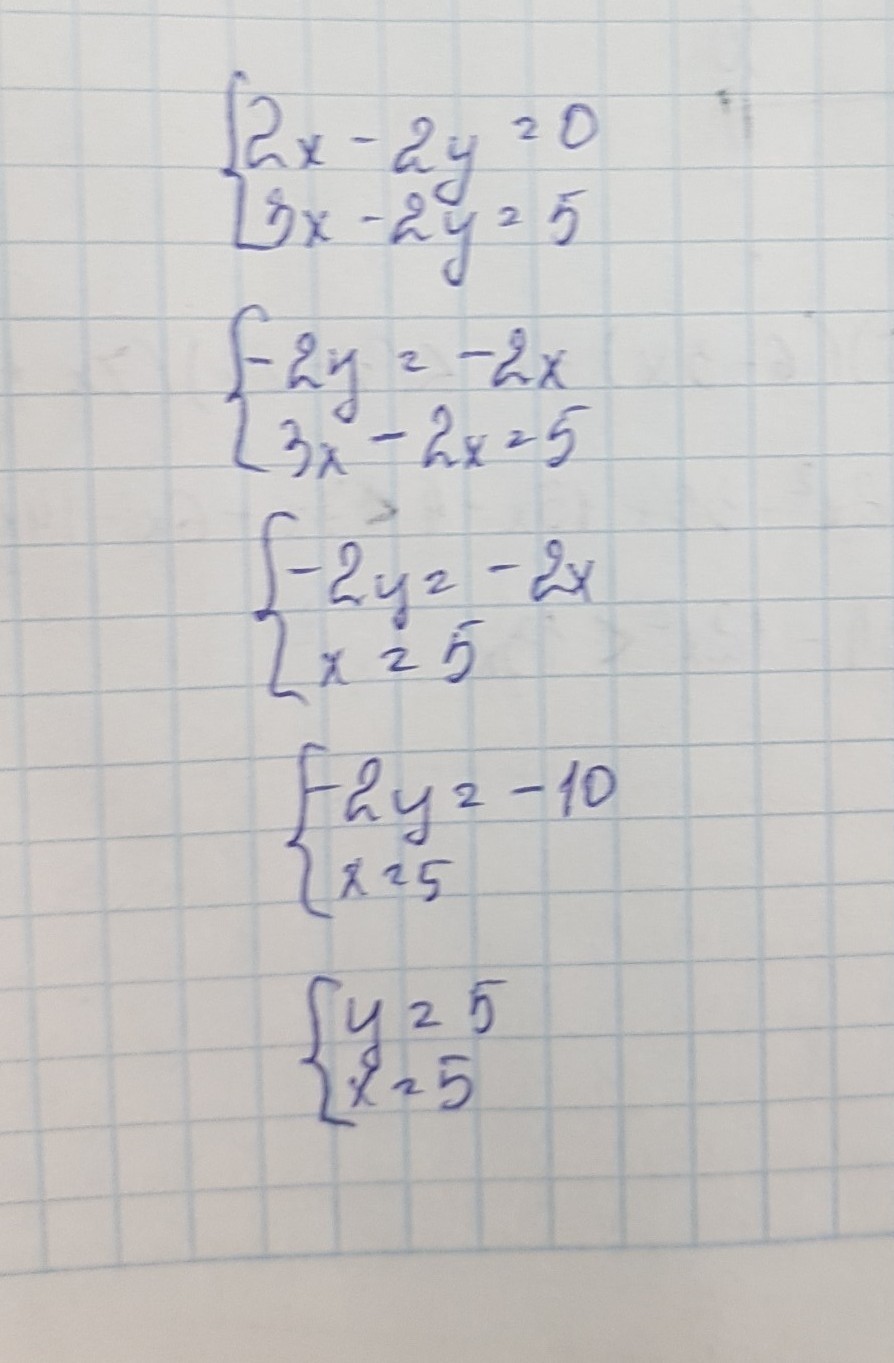 2x - 2y = 0
3x - 2y = 5
-2y = -2x
3x - 2x = 5
-2y = -2x
x = 5
-2y = -10
x = 5
y = 5
x = 5